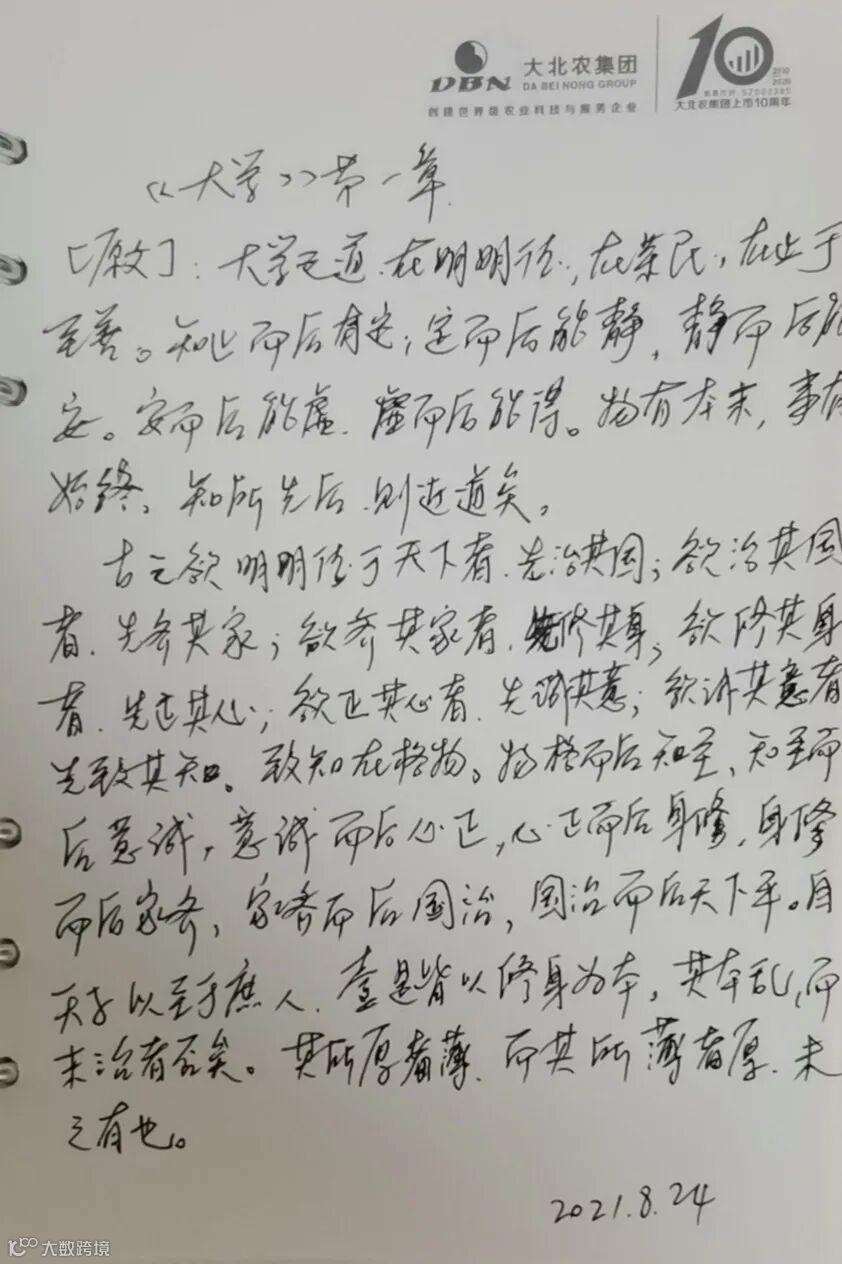 DBN
大北农集团
DA BEI NONG GROUP
创建世界级农业科技与服务企业
10
2010
2020
股票代码:SZ002385
大北农集团上市10周年
《大学》第一章
[原文]:大学之道、在明明德,在亲民,在止于
至善。知止而后有定;定而后能静,静而后能
安。安而后能虑、虑而后能得。物有本末,事有
始终、知所先后、则近道矣。
古之欲明明德于天下者、先治其国;欲治其国
者、先齐其家;欲齐其家者、先修其身;欲修其身
者、先正其心;欲正其心者、先诚其意;欲诚其意者
先致其知。致知在格物。物格而后知至、知至而
后意诚,意诚而后心正,心正而后身修,身修
而后家齐,家齐而后国治,国治而后天下平。自
天子以至于庶人、壹是皆以修身为本,其本乱,而
末治者否矣。其所厚者薄、而其所薄者厚、未
之有也。
2021.8.24
大数跨境